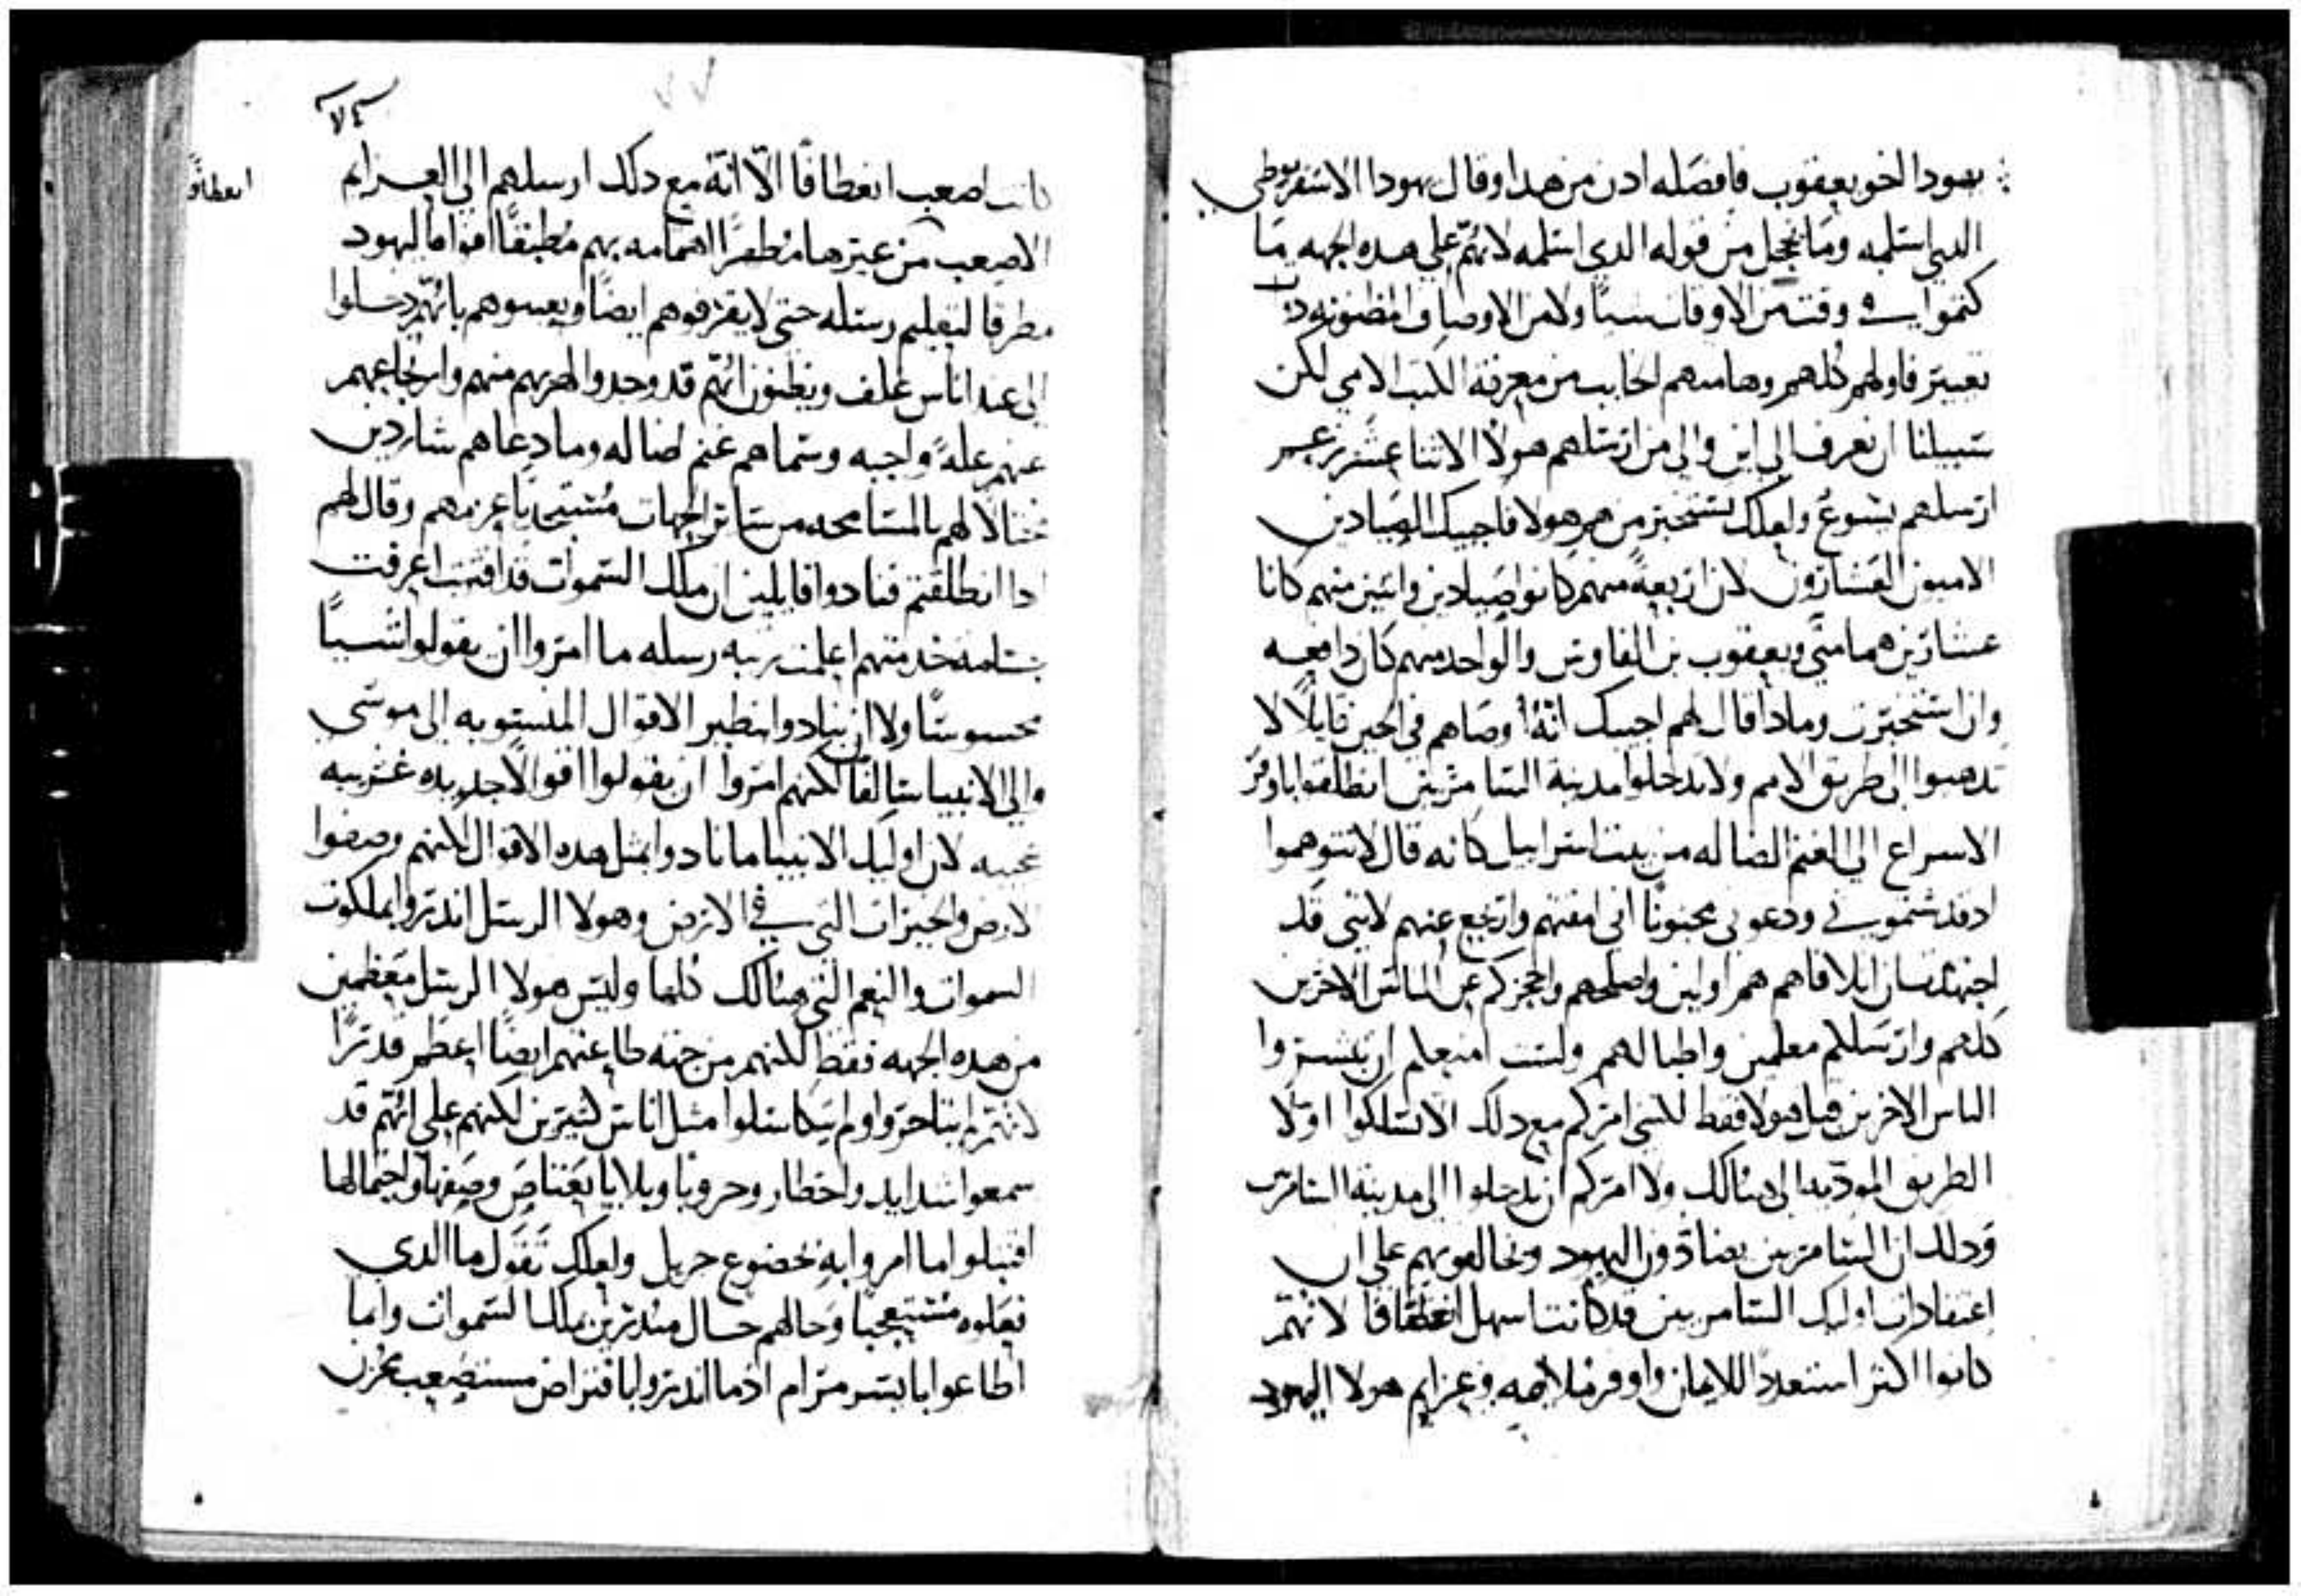 يهودا اخو يعقوب فافصله ادن من هدا وقال يهودا الاسخريوطي
الدي اسلمه وما خجل من قوله الدي اسلمه لانهم علي هده الجهه ما
كتموا في وقت من الاوقات شيًا ولا من الاوصاف المظنونه دات
تعيير فاولهم كلهم وهامتهم الخايب من معرفة الكتب الامي لكن
سبيلنا ان نعرف الي اين والي من ارسلهم هولا الاثنا عشر
ارسلهم يشوع ولعلك تستخبر من هم هولا فاجيبك الصيادين
الاميون العشارون لان اربعةً منهم كانوا صيادين واثنين منهم كانا
عشارين هما متي ويعقوب بن الفاوس والواحد منهم كان دافعه
وان استخبرت وماذا قال لهم اجيبك انهُ اوصاهم في الحين قايلاً لا
تدهبوا الي طريق الامم ولا تدخلوا مدينة السامريين انطلقوا باوفر
الاسراع الي الغنم الضاله من بيت اسراييل كانه قال لا تتوهموا
اد قد شتموني ودعوني مجنونًا اني امقتهم وارتجع عنهم لانني قد
اجتهدت ان ايلافاهم هم اولين واصلحهم واحجزكم عن الناس الاخرين
كلهم وارسلكم معلمين واطبا لهم ولست امنعكم ان تبشروا
الناس الاخرين قبل هولا فقط لكنني امركم مع دلك الا تسلكوا اولا
الطريق الموديه الي هنالك ولا امركم ان تدخلوا الي مدينة السامريين
ودلك ان السامريين يضادون اليهود ويخالفونهم علي ان
اعتقادات اوليك السامريين قد كانت اسهل انعطافا لانهم
كانوا اكثر استعدادًا للايمان واوفر ملايمه وعزايم هولا اليهود
كانت اصعب انعطافًا الا انهُ مع دلك ارسلهم الي العزايم
انعطافًا
الاصعب من غيرها مظهرًا اهتمامه بهم مطبقًا افواه اليهود
مطرقا لتعليم رسله حتي لا يقرفوهم ايضًا ويعيبوهم بانهم دخلوا
الي عند اناس غلف ويظنون انهم قد وجدوا لهربهم منهم وارتجاعهم
عنهم علةً واجبه وسماهم غنم ضاله وما دعاهم شاردين
محتالًا لهم بالمسامحه من ساير الجهات مستجدبًا عزمهم وقال لهم
ادا انطلقتم فنادوا قايلين ان ملك السموات قد اقترب اعرفت
جسامة خدمتهم اعلمت رتبه رسله ما امروا ان يقولوا شيًا
محسوسًا ولا ان ينادوا بنظير الاقوال المنسوبه الي موسي
والي الانبيا سالفًا لكنهم امروا ان يقولوا اقوالًا جديده غريبه
عجيبه لان اوليك الانبيا ما نادوا بمثل هده الاقوال لكنهم وصفوا
الارض والخيرات التي في الارض وهولا الرسل اندروا بملكوت
السموات والنعم التي هنالك كلها وليس هولا الرسل معظمين
من هده الجهه فقط لكنهم من جهة طاعتهم ايضًا اعظم قدرًا
لانهم لم يتاخروا ولم يتكاسلوا مثل اناس كثيرين لكنهم علي انهم قد
سمعوا شدايد واخطار وحروبا وبلايا يعتاص وصفها واحتمالها
اقتبلوا ما امروا به بخضوع جزيل ولعلك تقول ما الدي
فعلوه مستعجبا وحالهم حال مندرين بملك السموات وانما
اطاعوا بايسر مرام اد ما اندروا بافتراض مستصعب محزن